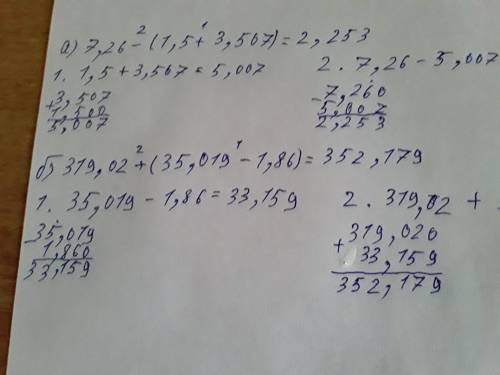 а) 7,26 - (1,5 + 3,507) = 2,253
1. 1,5 + 3,507 = 5,007
+3,507
1,500
5,007
2. 7,26 - 5,007
-7,260
5,007
2,253
б) 319,02 + (35,019 - 1,86) = 352,179
1. 35,019 - 1,86 = 33,159
-35,019
1,860
33,159
2. 319,02 +
319,020
+ 33,159
352,179